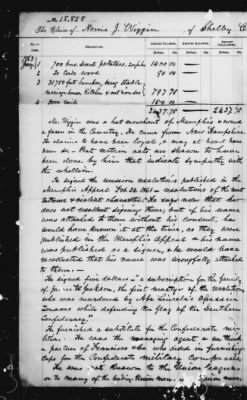 No 15.558
The Claim of Norris J. Wiggin, of Shelby
1863
1 700 bus. Sweet potatoes,
2 20 Cords wood
3 31750 feet lumber, being stable,
787.75
4 1000 rails
2637.75 2637.75
Mr. Wiggin was a hat merchant of Memphis & owned
a farm in the Country. He came from New Hampshire.
He claims to have been loyal, & may at heart have
been so. But certain acts are shown to have
been done by him that indicate sympathy with
the rebellion.
He signed the secession resolutions published in the
Memphis Appeal Feb. 1861 – resolutions of the most
extreme & violent character. He says under oath that he
does not recollect signing them; that if his name
was attached to them without his consent, he
would have known it at the time, as they were
published in the Memphis Appeal & his name
was published as a signer, & he would have
recollected that his name was wrongfully attached
to them.
He signed five dollars – "a subscription for the family
of James W. Jackson, the first martyr of the revolution
who was murdered by Abe Lincoln's
Zouaves while defending the flag of the Southern
Confederacy."
He furnished a substitute for the Confederate
He was the managing agent
a partner of Francisco & Co who dealt in furnishing
Caps for the Confederate Military Companies
He was not known to the Union leagues
or to many of the leading Union men.